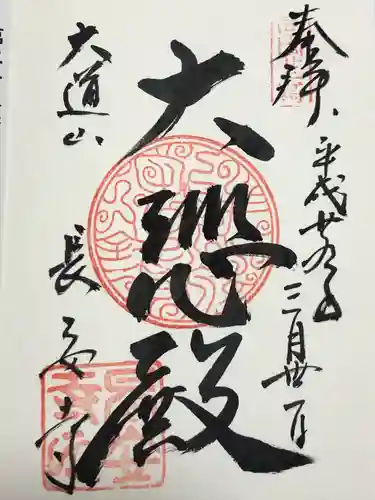 奉拝
平成廿九年三月卅一日
大悲殿
大道山
長安寺